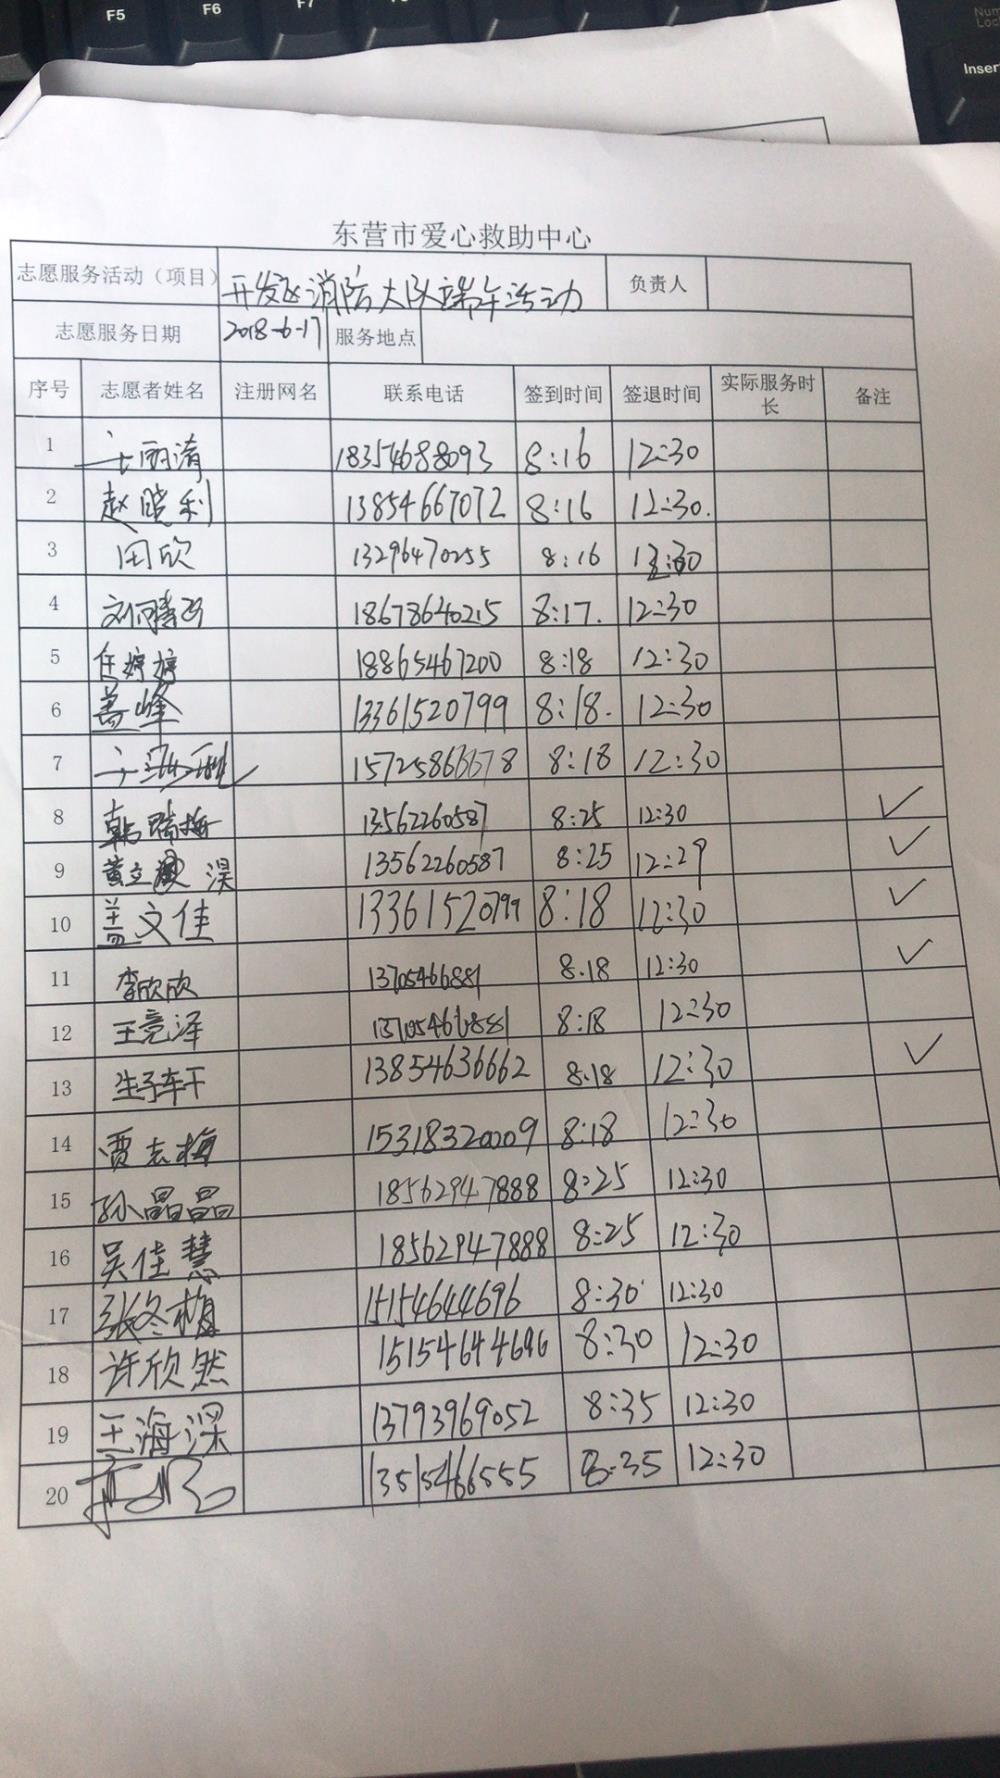 F5 F6 F7
Num Lock
Insert
东营市爱心救助中心
志愿服务活动（项目） 开发区消防大队端午活动 负责人
志愿服务日期 2018-6-17 服务地点
序号 志愿者姓名 注册网名 联系电话 签到时间 签退时间 实际服务时长 备注
1 王丽清 18354688093 8:16 12:30
2 赵晓利 13854667072 8:16 12:30.
3 田欣 13296470255 8:16 12:30
4 18678640215 8:17. 12:30
5 任婷婷 18865467200 8:18 12:30
6 盖峰 13361520799 8:18. 12:30
7 15725866678 8:18 12:30
8 韩瑞梅 13562260587 8:25 12:30 ✓
9 黄立 淏 13562260587 8:25 12:29 ✓
10 盖文佳 13361520799 8:18 12:30 ✓
11 李欣欣 13705466881 8.18 12:30 ✓
12 王竞泽 13705466881 8:18 12:30
13 生子车干 13854636662 8.18 12:30 ✓
14 贾志梅 15318320009 8:18 12:30
15 孙晶晶 18562947888 8:25 12:30
16 吴佳慧 18562947888 8:25 12:30
17 张冬梅 15154644696 8:30 12:30
18 许欣然 15154644696 8:30 12:30
19 王海深 13793969052 8:35 12:30
20 13515466555 8:35 12:30